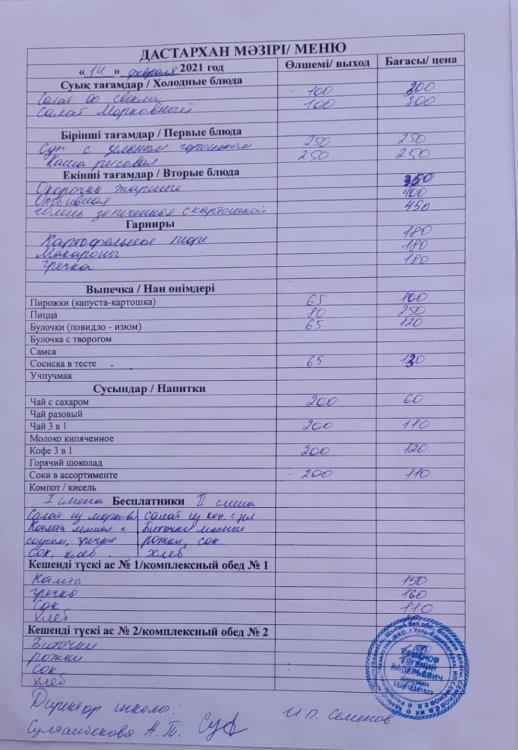 ДАСТАРХАН МӘЗІРІ/ МЕНЮ
« 14 » февраля 2021 год Өлшемі/ выход Бағасы/ цена
Суық тағамдар / Холодные блюда
Салат со свеклы 100 300
Салат Морковный 100 300
Бірінші тағамдар / Первые блюда
Суп с зеленым горошком 250 250
Каша рисовая 250 250
Екінші тағамдар / Вторые блюда
Окорочка жареные 350
400
голень запеченная с картошкой 450
Гарниры
Картофельное пюре 180
Макароны 180
Гречка 180
Выпечка / Нан өнімдері
Пирожки (капуста-картошка) 65 100
Пицца 80 250
Булочки (повидло - изюм) 65 120
Булочка с творогом
Самса
Сосиска в тесте 65 130
Учпучмак
Сусындар / Напитки
Чай с сахаром 200 60
Чай разовый
Чай 3 в 1 200 110
Молоко кипяченное
Кофе 3 в 1 200 120
Горячий шоколад
Соки в ассортименте 200 110
Компот / кисель
I смена Бесплатники II смена
Салат из моркови Салат из кап. с
Биточки мясные
соусом, гречка рожки, сок.
Сок, хлеб. хлеб
Кешенді түскі ас № 1/комплексный обед № 1
150
гречка 160
Сок 110
хлеб
Кешенді түскі ас № 2/комплексный обед № 2
Биточки
рожки
Сок
хлеб
СЕМЕНОВ
ЕВГЕНИЙ
ВАЛЕРЬЕВИЧ
Директор школы:
Султанбекова А. Т. И. П. Семенов